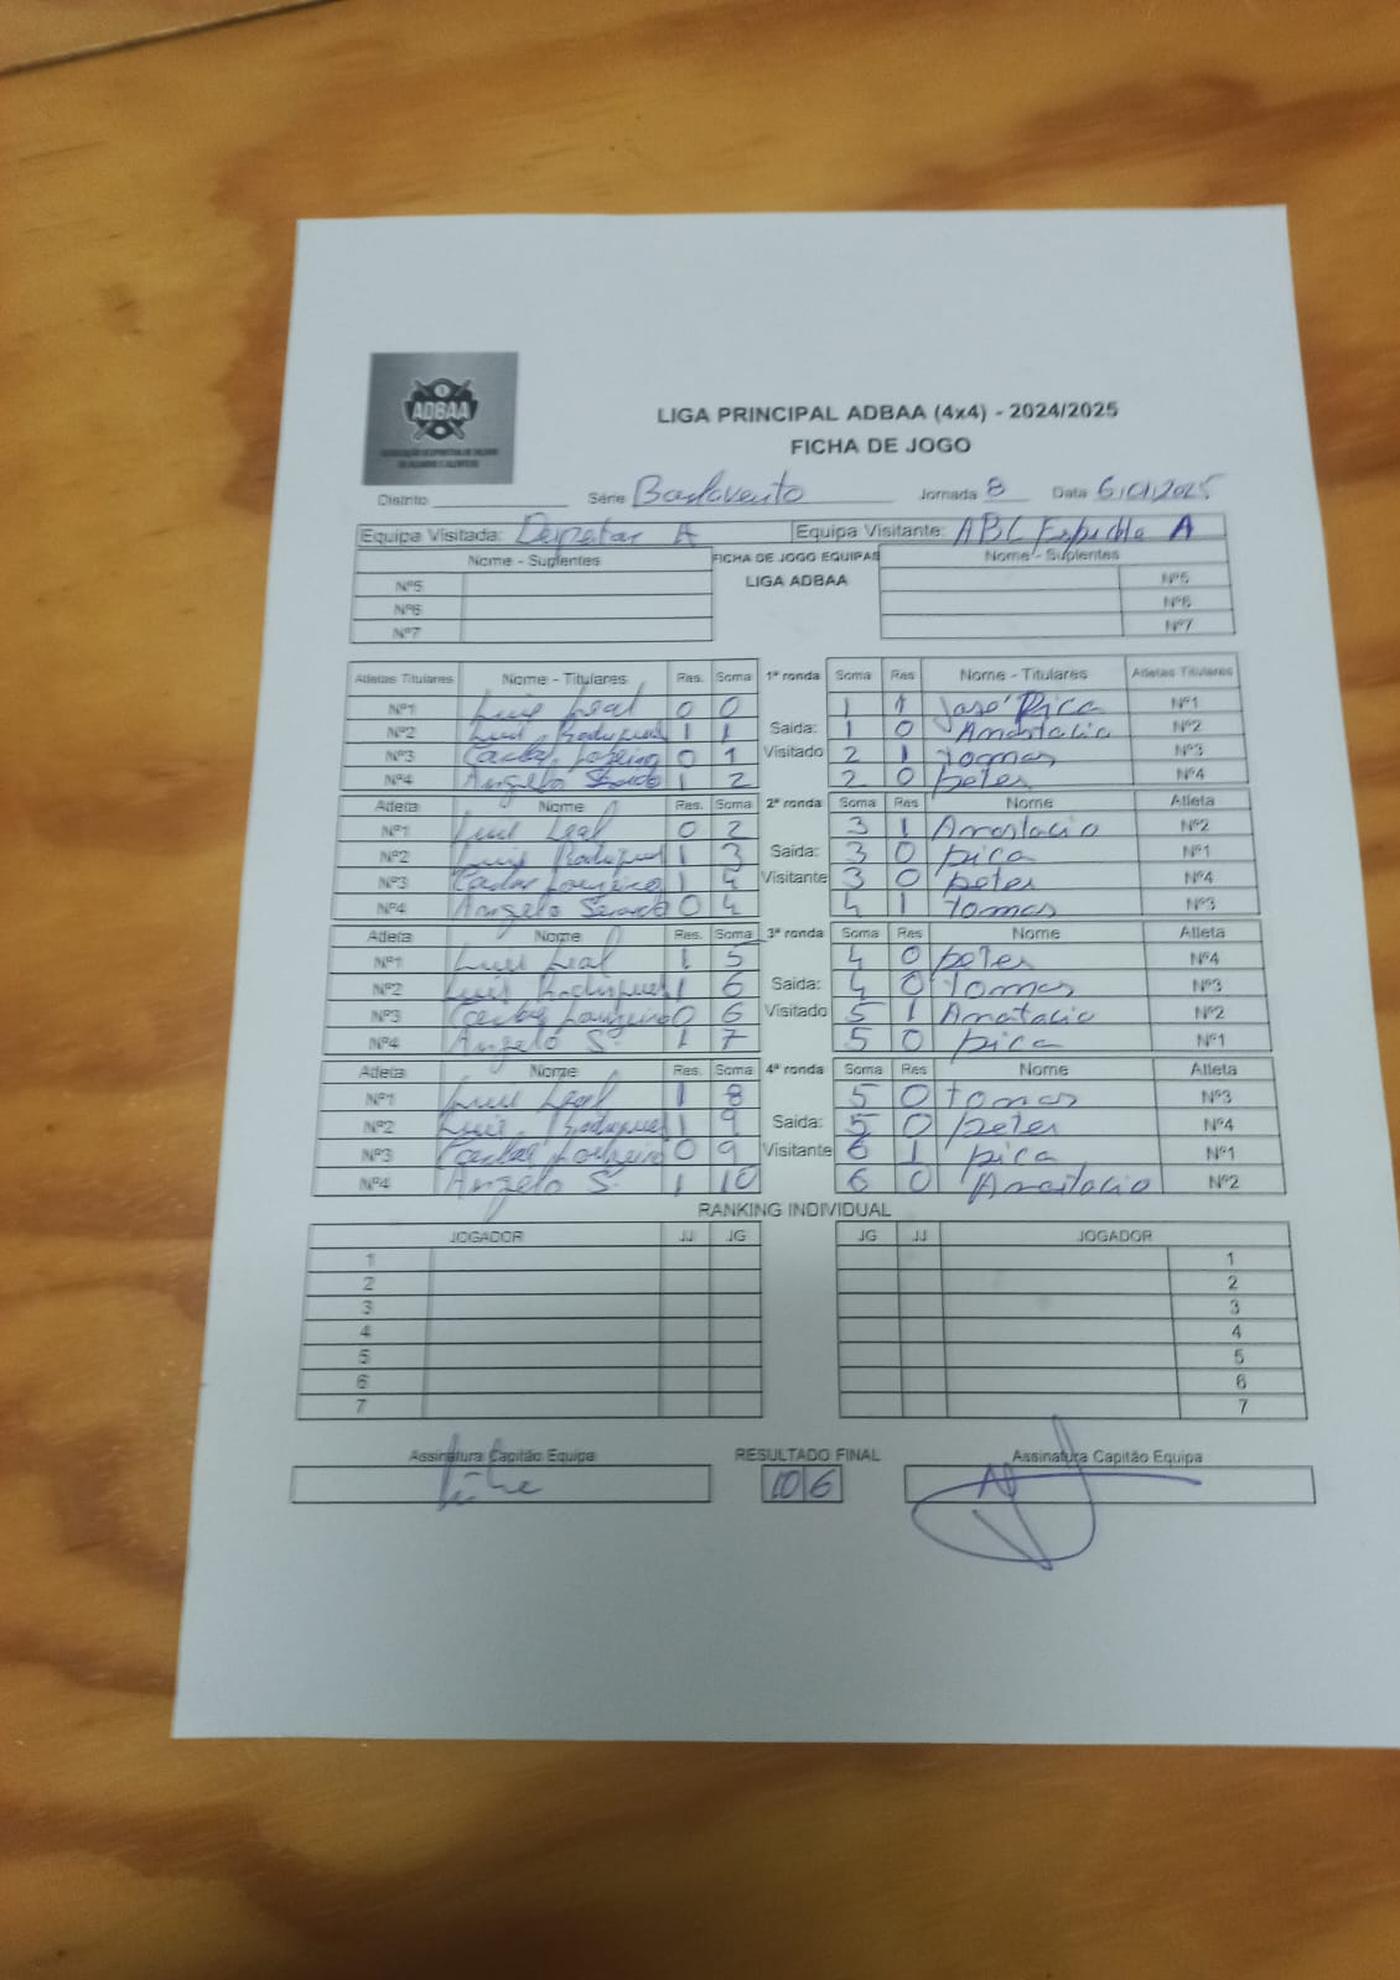 ADBAA
LIGA PRINCIPAL ADBAA (4x4) - 2024/2025
FICHA DE JOGO
Distrito Série Barlavento Jornada 8 Data 6/01/2025
Equipa Visitada: A Equipa Visitante: ABC A
Nome - Suplentes FICHA DE JOGO EQUIPAS Nome - Suplentes
LIGA ADBAA
Nº5 Nº5
Nº6 Nº6
Nº7 Nº7
Atletas Titulares Nome - Titulares Res. Soma 1ª ronda Soma Res Nome - Titulares Atletas Titulares
Nº1 Luis Leal 0 0 1 1 José Pica Nº1
Nº2 Luis Rodrigues 1 1 Saida: 1 0 Anastacio Nº2
Nº3 Carlos Loureiro 0 1 Visitado 2 1 tomas Nº3
Nº4 Angelo 1 2 2 0 peter Nº4
Atleta Nome Res. Soma 2ª ronda Soma Res Nome Atleta
Nº1 Luis Leal 0 2 3 1 Anastacio Nº2
Nº2 Luis Rodrigues 1 3 Saida: 3 0 pica Nº1
Nº3 Carlos Loureiro 1 4 Visitante 3 0 peter Nº4
Nº4 Angelo 0 4 4 1 tomas Nº3
Atleta Nome Res. Soma 3ª ronda Soma Res Nome Atleta
Nº1 Luis Leal 1 5 4 0 peter Nº4
Nº2 Luis Rodrigues 1 6 Saida: 4 0 tomas Nº3
Nº3 Carlos Loureiro 0 6 Visitado 5 1 Anastacio Nº2
Nº4 Angelo S. 1 7 5 0 pica Nº1
Atleta Nome Res. Soma 4ª ronda Soma Res Nome Atleta
Nº1 Luis Leal 1 8 5 0 tomas Nº3
Nº2 Luis Rodrigues 1 9 Saida: 5 0 peter Nº4
Nº3 Carlos Loureiro 0 9 Visitante 6 1 pica Nº1
Nº4 Angelo S. 1 10 6 0 Anastacio Nº2
RANKING INDIVIDUAL
JOGADOR JJ JG JG JJ JOGADOR
1 1
2 2
3 3
4 4
5 5
6 6
7 7
Assinatura Capitão Equipa RESULTADO FINAL Assinatura Capitão Equipa
10 6